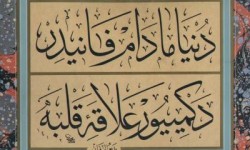 دُنيا مادام فانيدر
دكمييور علاقهٔ قلبه